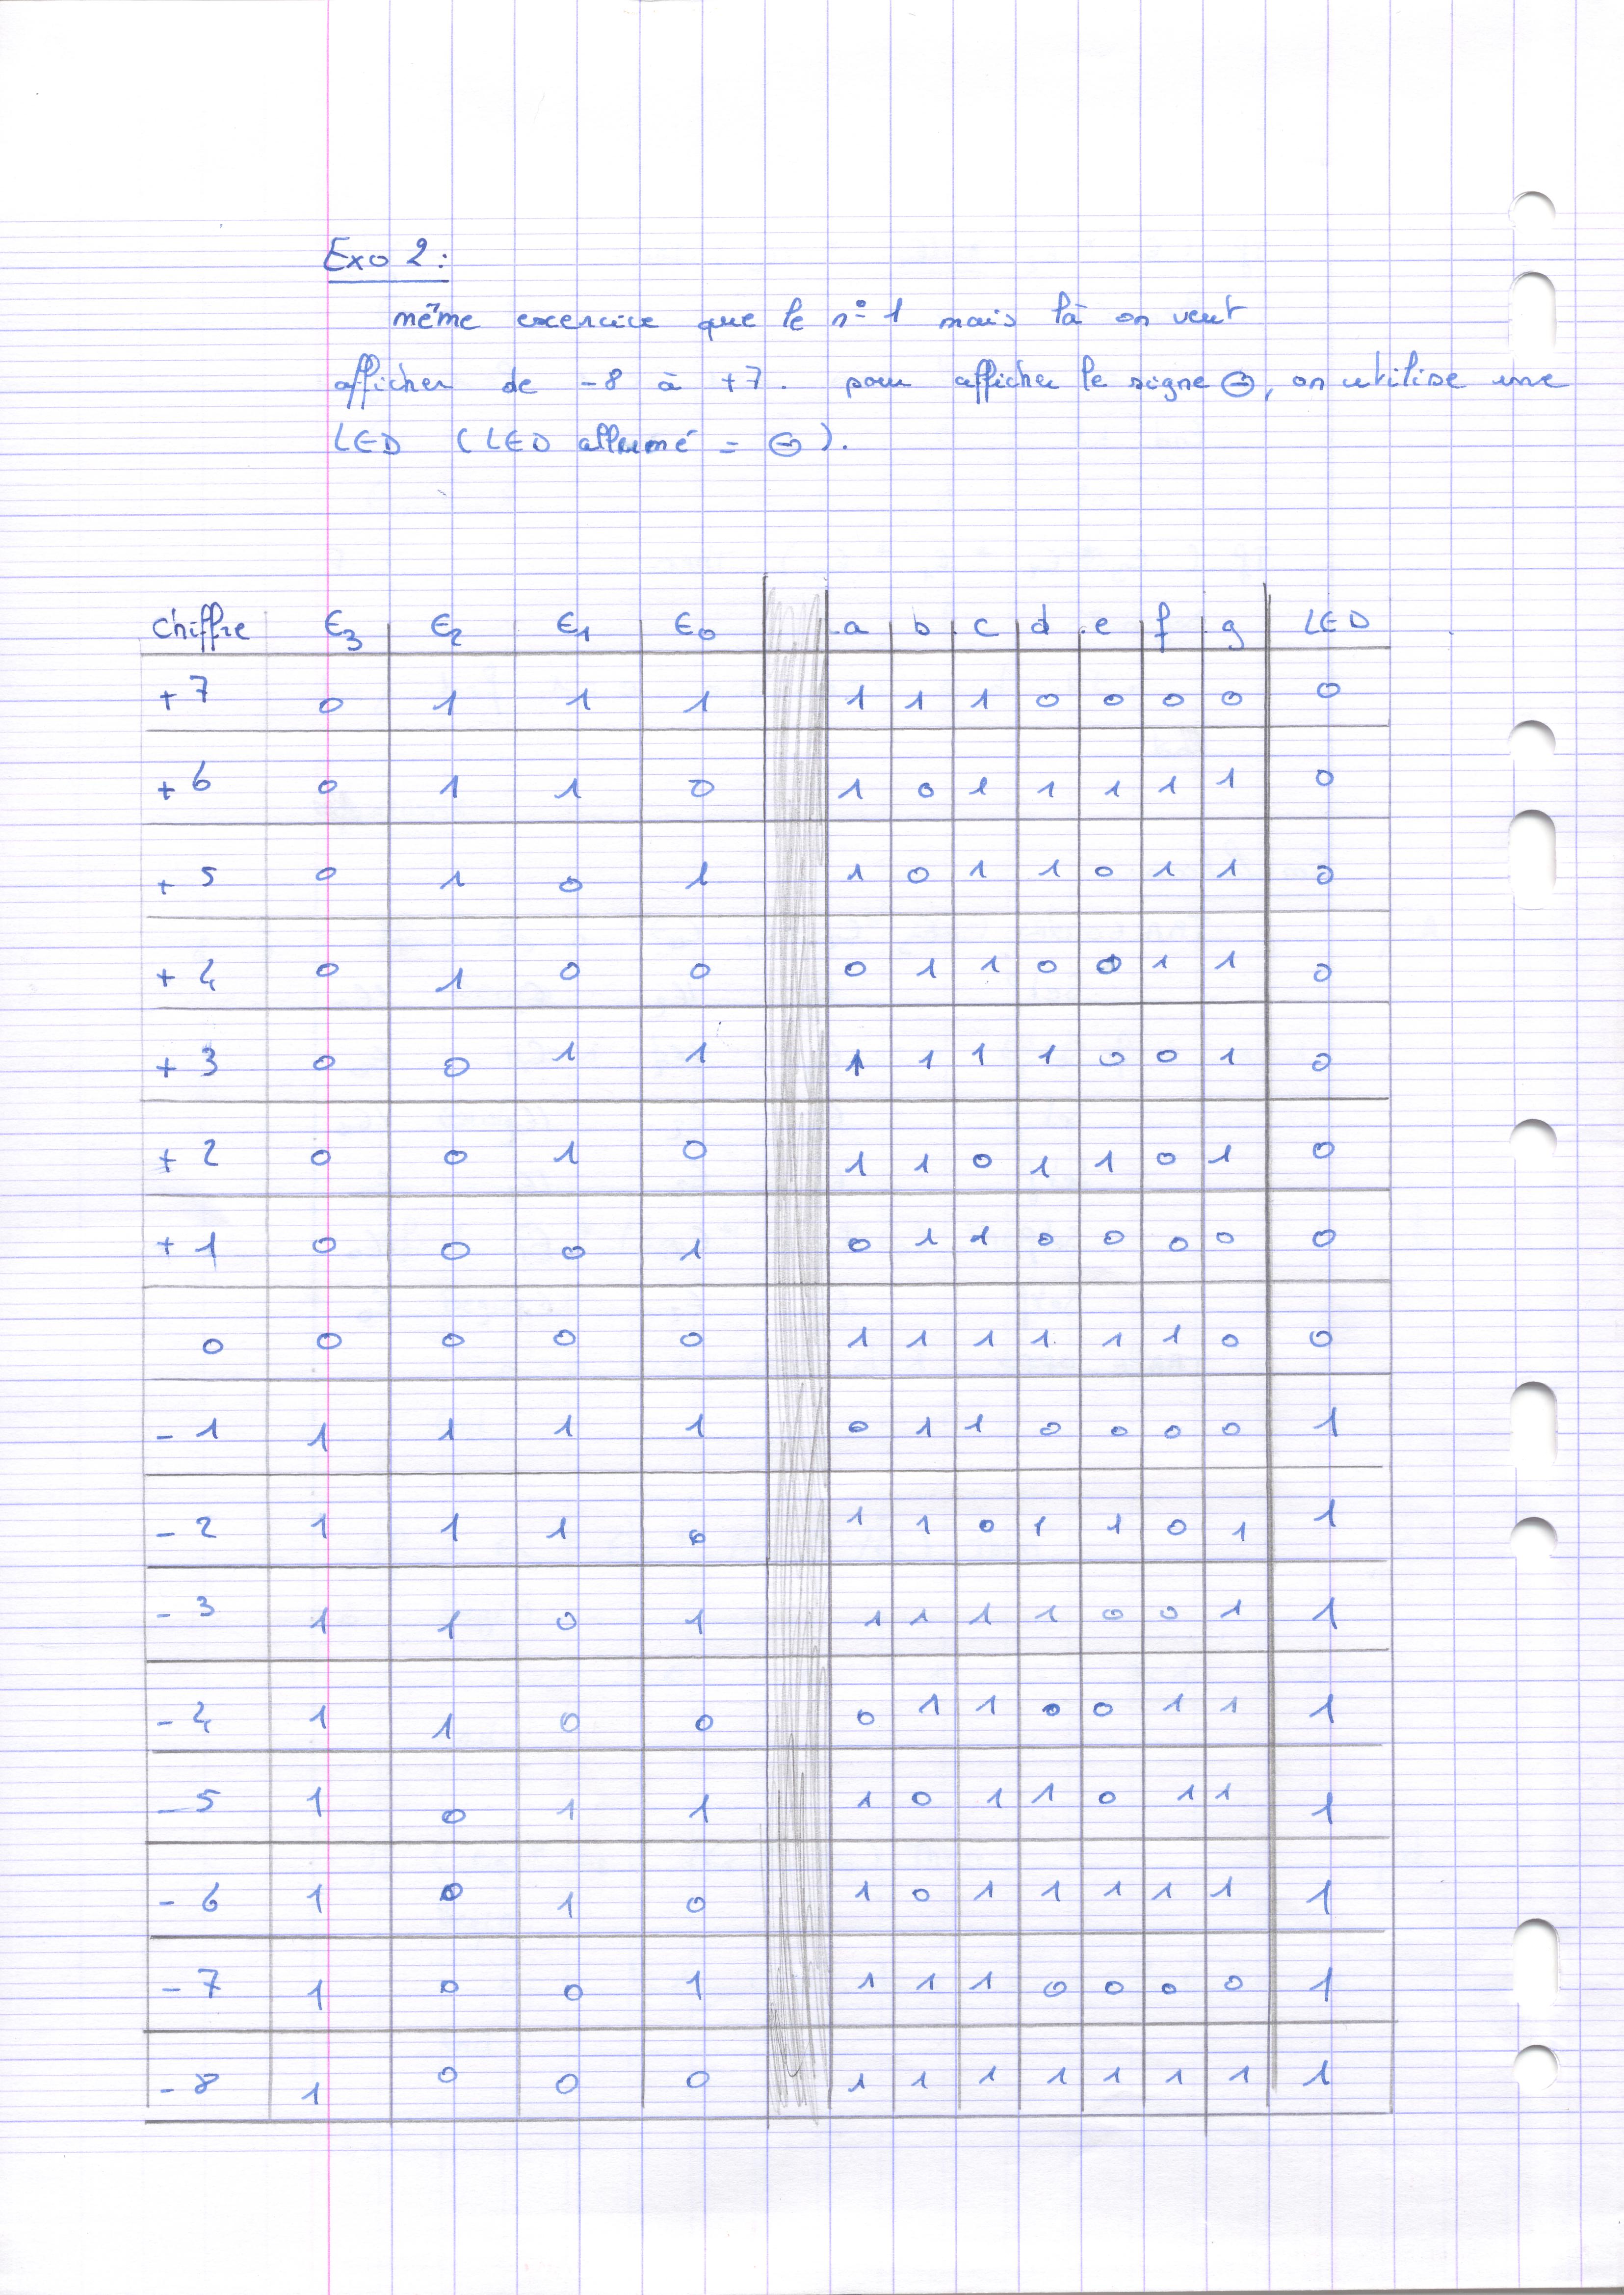 Exo 2 :
même excercice que le n° 1 mais là on veut
afficher de -8 à +7. pour afficher le signe ⊖, on utilise une
LED (LED allumé = ⊖).
chiffre E3 E2 E1 E0 a b c d e f g LED
+7 0 1 1 1 1 1 1 0 0 0 0 0
+6 0 1 1 0 1 0 1 1 1 1 1 0
+5 0 1 0 1 1 0 1 1 0 1 1 0
+4 0 1 0 0 0 1 1 0 0 1 1 0
+3 0 0 1 1 1 1 1 1 0 0 1 0
+2 0 0 1 0 1 1 0 1 1 0 1 0
+1 0 0 0 1 0 1 1 0 0 0 0 0
0 0 0 0 0 1 1 1 1 1 1 0 0
-1 1 1 1 1 0 1 1 0 0 0 0 1
-2 1 1 1 0 1 1 0 1 1 0 1 1
-3 1 1 0 1 1 1 1 1 0 0 1 1
-4 1 1 0 0 0 1 1 0 0 1 1 1
-5 1 0 1 1 1 0 1 1 0 1 1 1
-6 1 0 1 0 1 0 1 1 1 1 1 1
-7 1 0 0 1 1 1 1 0 0 0 0 1
-8 1 0 0 0 1 1 1 1 1 1 1 1